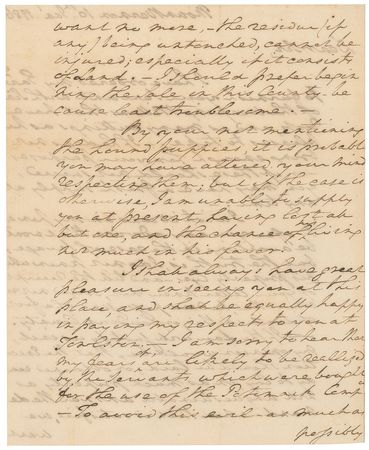 want no more, - the residue (if
any) being untouched, cannot be
injured; especially if it consists
of Land. - I should prefer begin
ning the Sale in this County be
cause least troublesome. -
By your not mentioning
the hound puppies, it is probable
you may have altered your mind
respecting them; but if the case is
otherwise, I am unable to supply
you at present, having lost all
but one, and the chance of his living
not much in his favor.
I shall always have great
pleasure in seeing you at this
place and shall be equally happy
in paying my respects to you at
- I am sorry to hear that
my fears are likely to be realized
by the Servants which were bought
for the use of the Potomack Comp
- To avoid this evil as much as
possibly